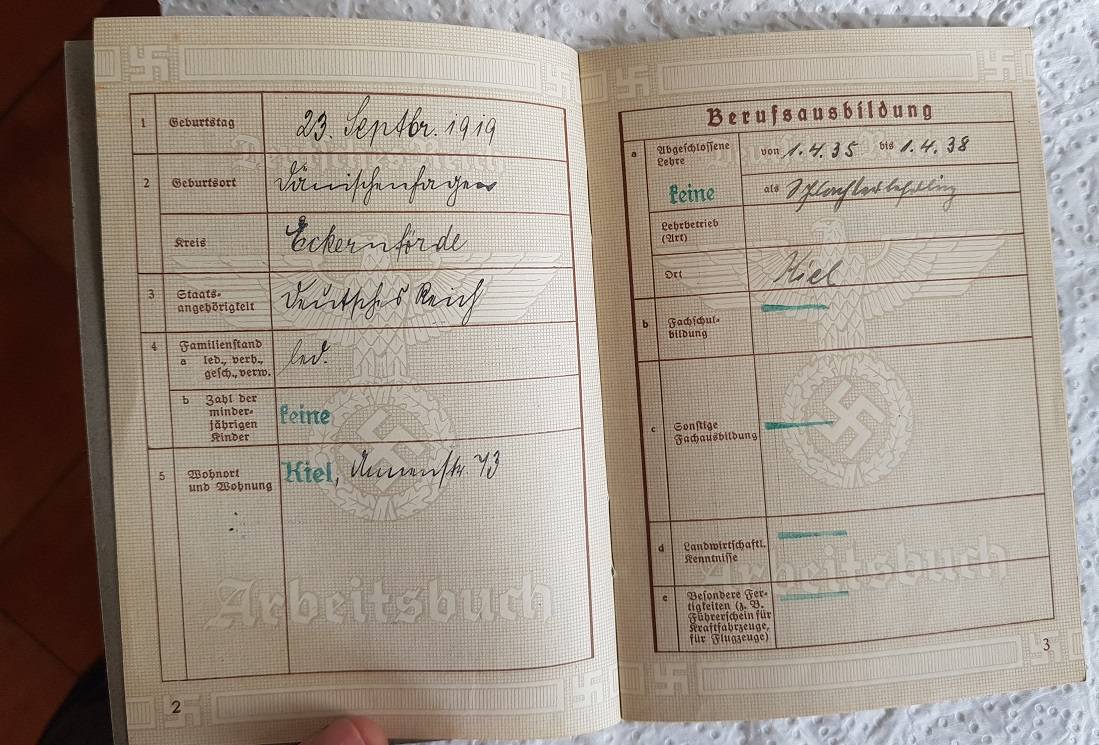 Deutsches Reich
1 Geburtstag 23. Septbr. 1919
2 Geburtsort Dänischenhagen
Kreis Eckernförde
3 Staats-
angehörigkeit Deutsches Reich
4 Familienstand
a led., verh.,
gesch., verw. led.
b Zahl der
minder-
jährigen
Kinder keine
5 Wohnort
und Wohnung Kiel, Annenstr. 73
Arbeitsbuch
2
Berufsausbildung
a Abgeschlossene
Lehre von 1.4.35 bis 1.4.38
keine als Schlachterlehrling
Lehrbetrieb
(Art)
Ort Kiel
b Fachschul-
bildung
c Sonstige
Fachausbildung
d Landwirtschaftl.
Kenntnisse
Arbeitsbuch
e Besondere Fer-
tigkeiten (z. B.
Führerschein für
Kraftfahrzeuge,
für Flugzeuge)
3